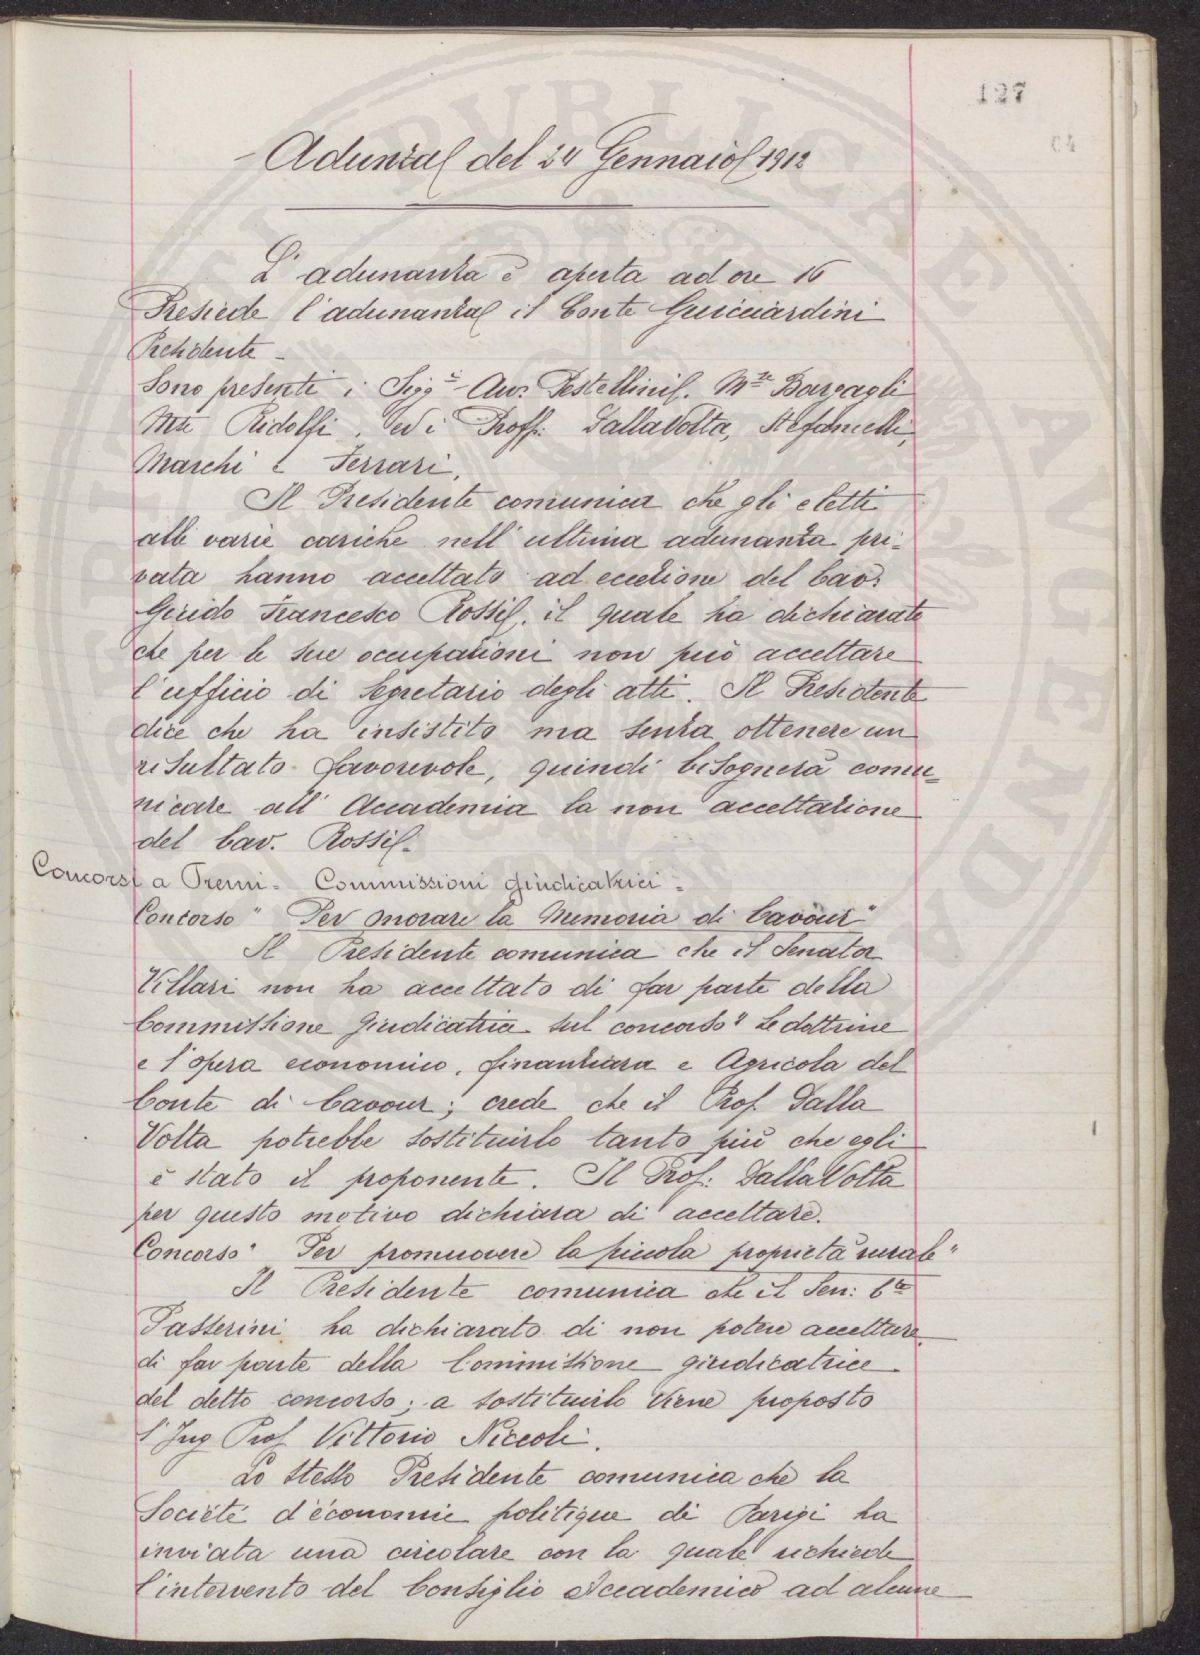 127
64
Adunza del 24 Gennaio 1912
L'adunanza è aperta ad ore 16
Presiede l'adunanza il Conte Guicciardini
Presidente -
Sono presenti i Sigg.i Avv. Pestellini, Mse Bargagli
Mse Ridolfi, ed i Proff: Dalla Volta, Stefanelli,
Marchi e Ferrari.
Il Presidente comunica che gli eletti
alle varie cariche nell'ultima adunanza pri-
vata hanno accettato ad eccezione del Cav:
Guido Francesco Rossi, il quale ha dichiarato
che per le sue occupazioni non può accettare
l'ufficio di Segretario degli atti. Il Presidente
dice che ha insistito ma senza ottenere un
risultato favorevole, quindi bisognerà comu=
nicare all'Accademia la non accettazione
del Cav. Rossi.
Concorsi a Premi - Commissioni giudicatrici -
Concorso "Per onorare la Memoria di Cavour"
Il Presidente comunica che il Senator
Villari non ha accettato di far parte della
Commissione Giudicatrice sul concorso "Le dottrine
e l'opera economico, finanziara e Agricola del
Conte di Cavour; crede che il Prof. Dalla
Volta potrebbe sostituirlo tanto più che egli
è stato il proponente. Il Prof: Dalla Volta
per questo motivo dichiara di accettare.
Concorso "Per promuovere la piccola proprietà rurale"
Il Presidente comunica che il Sen: Cte
Passerini ha dichiarato di non potere accettare
di far parte della Commissione giudicatrice
del detto concorso; a sostituirlo viene proposto
l'Ing Prof Vittorio Niccoli.
Lo stesso Presidente comunica che la
Société d'économie politique di Parigi ha
inviata una circolare con la quale richiede
l'intervento del Consiglio Accademico ad alcune